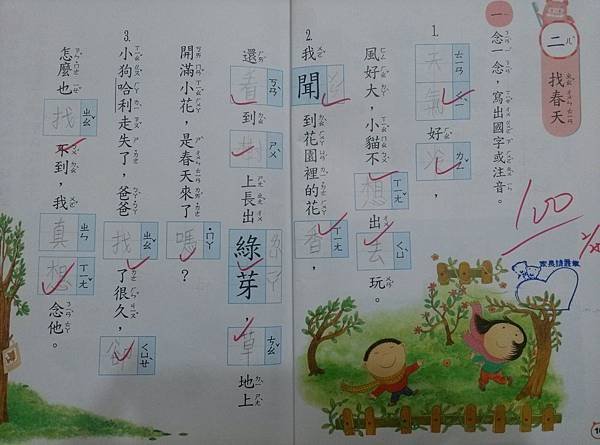 二 找春天
一 念一念，寫出國字或注音。
1. 天氣好冷，
風好大，小貓不想出去玩。
2. 我聞到花園裡的花香，
還看到樹上長出綠芽，草地上
開滿小花，是春天來了嗎？
3. 小狗哈利走失了，爸爸找了很久，卻
怎麼也找不到，我真想念他。
100
家長請蓋章